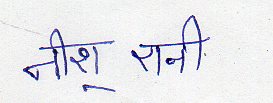 नीशू रानी